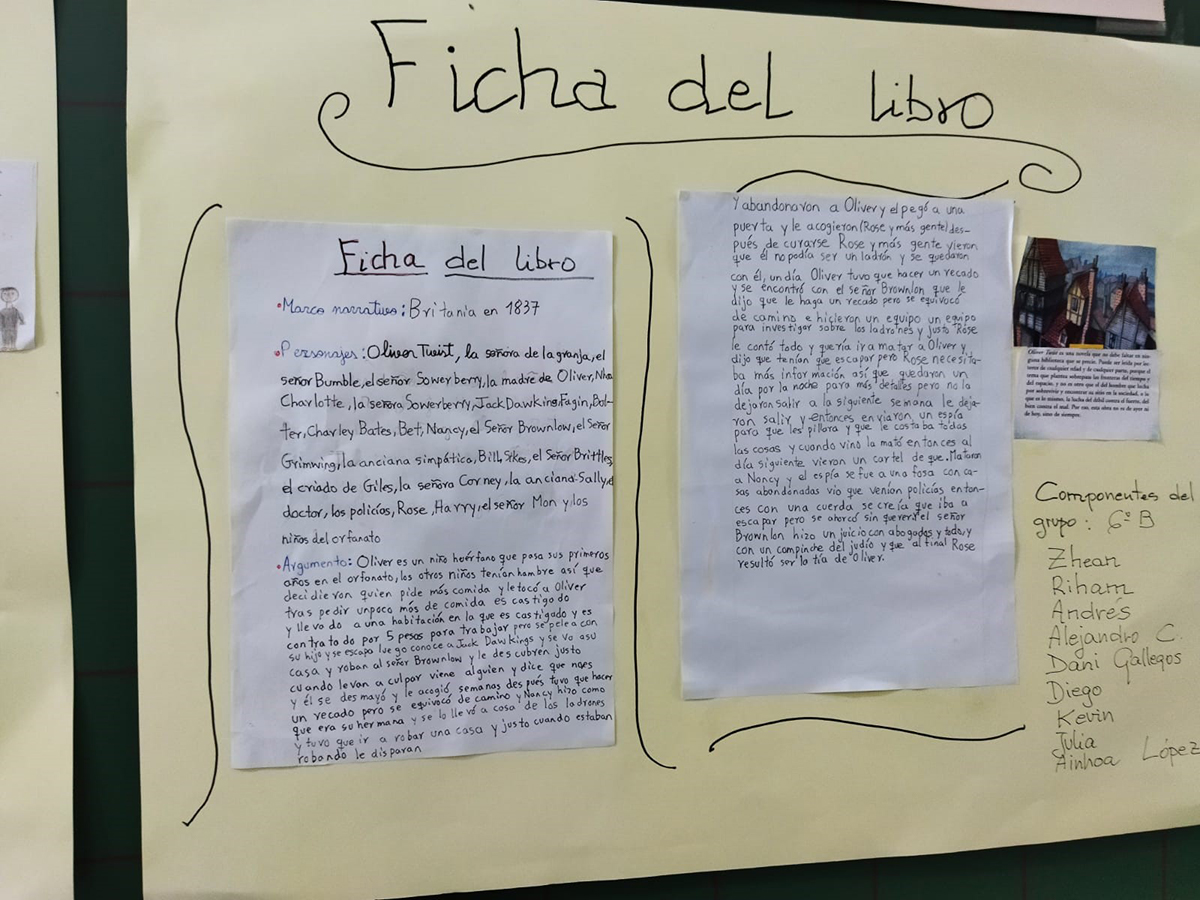 Ficha del libro
Ficha del libro
•Marco narrativo: Britania en 1837
•Personajes: Oliver Twist, la señora de la granja, el
señor Bumble, el señor Sowerberry, la madre de Oliver, Nha
Charlotte, la señora Sowerberry, Jack Dawking, Fagin, Bol-
ter, Charley Bates, Bet, Nancy, el Señor Brownlow, el señor
Grimwing, la anciana simpática, Bill, Sikes, el Señor Brittles,
el criado de Giles, la señora Corney, la anciana Sally, el
doctor, los policías, Rose, Harry, el señor Mon y los
niños del orfanato
•Argumento: Oliver es un niño huérfano que pasa sus primeros
años en el orfonato, los otros niños tenian hambre así que
decidieron quien pide más comida y le tocó a Oliver
tras pedir unpoco más de comida es castigado
y llevado a una habitación en la que es castigado y es
contratado por 5 pesos para trabajar pero se pelea con
su hijo y se escapa luego conoce a Jack Dawkings y se va asu
casa y roban al señor Brownlow y le descubren justo
cuando levan a culpar viene alguien y dice que noes
y él se desmayó y le acogió, semanas después tuvo que hacer
un recado pero se equivocó de camino y Nancy hizo como
que era su hermana y se lo llevó a casa de los ladrones
y tuvo que ir a robar una casa y justo cuando estaban
robando le disparan
Y abandonaron a Oliver y el pegó a una
puerta y le acogieron (Rose y más gente) des-
pués de curarse Rose y más gente vieron
que él no podía ser un ladrón y se quedaron
con él, un día Oliver tuvo que hacer un recado
y se encontró con el señor Brownlon que le
dijo que le haga un recado pero se equivocó
de camino e hicieron un equipo un equipo
para investigar sobre los ladrones y justo Rose
le contó todo y quería ir a matar a Oliver y
dijo que tenían que escapar pero Rose necesita-
ba más información así que quedaron un
día por la noche para más detalles pero no la
dejaron salir a la siguiente semana le deja-
ron salir y entonces enviaron un espía
para que les pillara y que le costaba todas
las cosas y cuando vino la mató entonces al
día siguiente vieron un cartel de que. Mataron
a Nancy y el espía se fue a una fosa con ca-
sas abandonadas vio que venían policías enton-
ces con una cuerda se creía que iba a
escapar pero se ahorcó sin querer el señor
Brownlon hizo un juicio con abogados y todo, y
con un compinche del judío y que al final Rose
resultó ser la tía de Oliver.
Oliver Twist es una novela que no debe faltar en nin-
guna biblioteca que se precie. Puede ser leída por lec-
tores de cualquier edad y de cualquier parte, porque el
tema que plantea sobrepasa las fronteras del tiempo y
del espacio, y no es otro que el del hombre que lucha
por sobrevivir y encontrar su sitio en la sociedad, o lo
que es lo mismo, la lucha del débil contra el fuerte, del
bien contra el mal. Por eso, esta obra no es de ayer ni
de hoy, sino de siempre.
Componentes del
grupo: 6º B
Zhean
Riham
Andrés
Alejandro C.
Dani Gallegos
Diego
Kevin
Julia
Ainhoa López